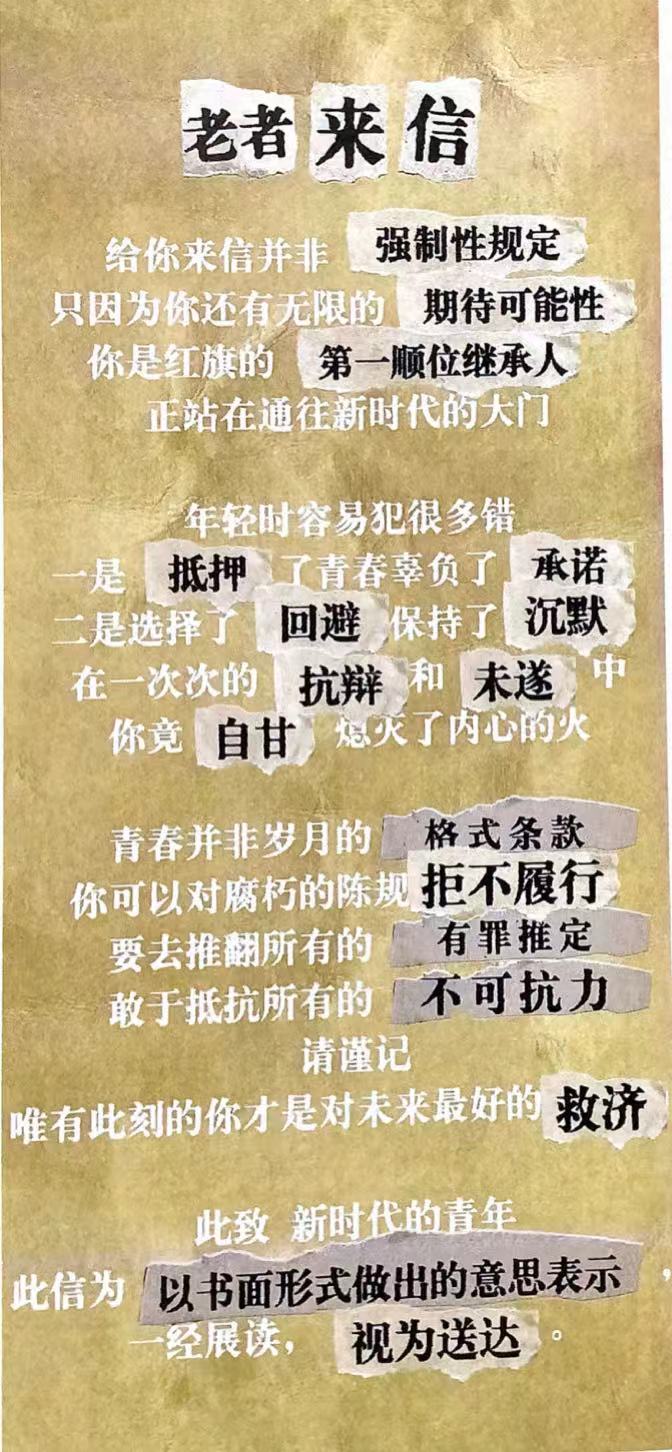 老者来信
给你来信并非 强制性规定
只因为你还有无限的 期待可能性
你是红旗的 第一顺位继承人
正站在通往新时代的大门
年轻时容易犯很多错
一是 抵押 了青春辜负了 承诺
二是选择了 回避 保持了 沉默
在一次次的 抗辩 和 未遂 中
你竟 自甘 熄灭了内心的火
青春并非岁月的 格式条款
你可以对腐朽的陈规 拒不履行
要去推翻所有的 有罪推定
敢于抵抗所有的 不可抗力
请谨记
唯有此刻的你才是对未来最好的 救济
此致 新时代的青年
此信为 以书面形式做出的意思表示 ，
一经展读， 视为送达 。